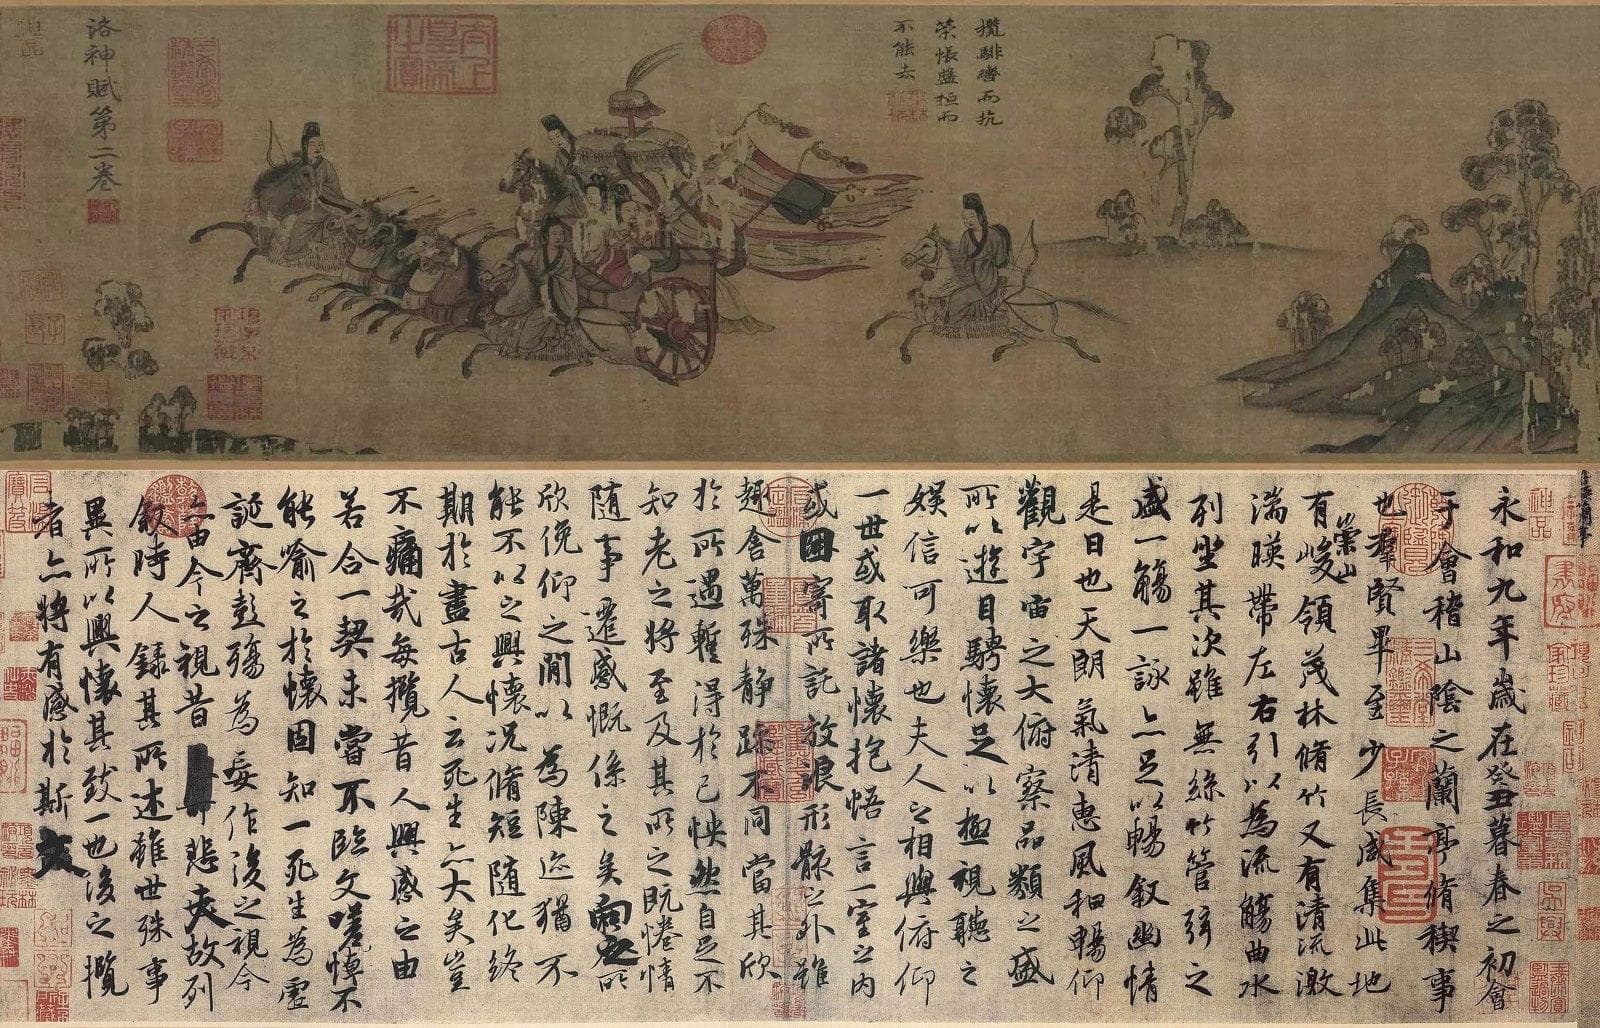 攬騑轡而抗
策悵盤桓而
不能去
太上皇帝之寶
洛神賦第二卷
永和九年歲在癸丑暮春之初會
于會稽山陰之蘭亭脩稧事
也羣賢畢至少長咸集此地
有崇山峻領茂林脩竹又有清流激
湍暎帶左右引以為流觴曲水
列坐其次雖無絲竹管弦之
盛一觴一詠亦足以暢敘幽情
是日也天朗氣清惠風和暢仰
觀宇宙之大俯察品類之盛
所以遊目騁懷足以極視聽之
娛信可樂也夫人之相與俯仰
一世或取諸懷抱悟言一室之內
或因寄所託放浪形骸之外雖
趣舍萬殊靜躁不同當其欣
於所遇蹔得於己怏然自足不
知老之將至及其所之既惓情
隨事遷感慨係之矣向之所
欣俛仰之閒以為陳迹猶不
能不以之興懷況脩短隨化終
期於盡古人云死生亦大矣豈
不痛哉每攬昔人興感之由
若合一契未嘗不臨文嗟悼不
能喻之於懷固知一死生為虛
誕齊彭殤為妄作後之視今
亦由今之視昔悲夫故列
敘時人錄其所述雖世殊事
異所以興懷其致一也後之攬
者亦將有感於斯文